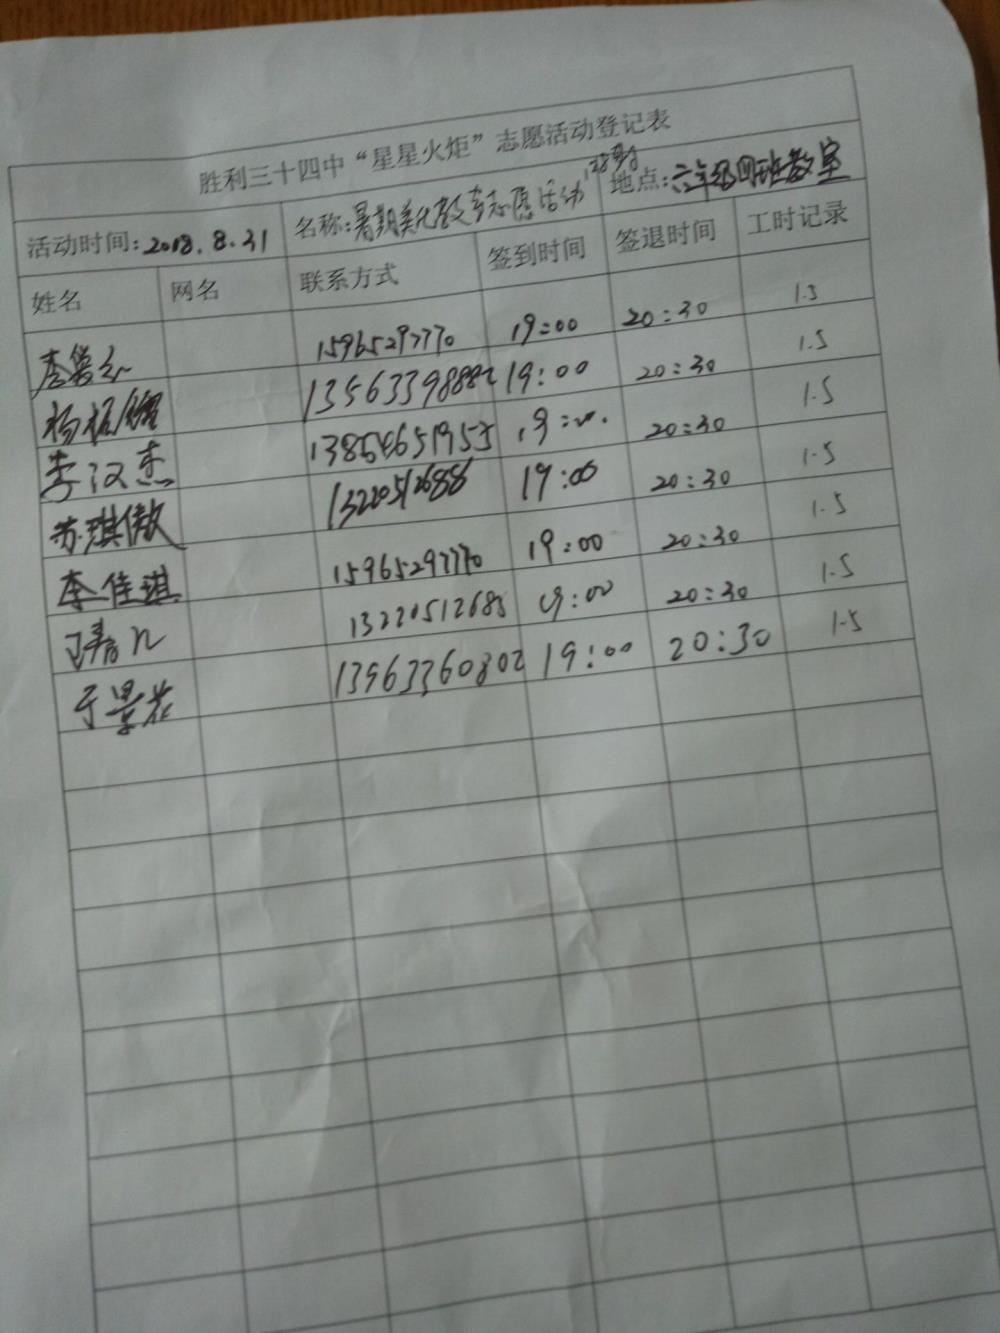 胜利三十四中“星星火炬”志愿活动登记表
活动时间:2018.8.31 名称:暑期美化教室志愿活动 地点:六年级四班教室
姓名 网名 联系方式 签到时间 签退时间 工时记录
15965297770 19:00 20:30 1.5
杨 13563398882 19:00 20:30 1.5
李汉杰 13854651955 19:00 20:30 1.5
苏琪傲 13220512688 19:00 20:30 1.5
李佳琪 15965297770 19:00 20:30 1.5
13220512688 19:00 20:30 1.5
于景花 13963360802 19:00 20:30 1.5